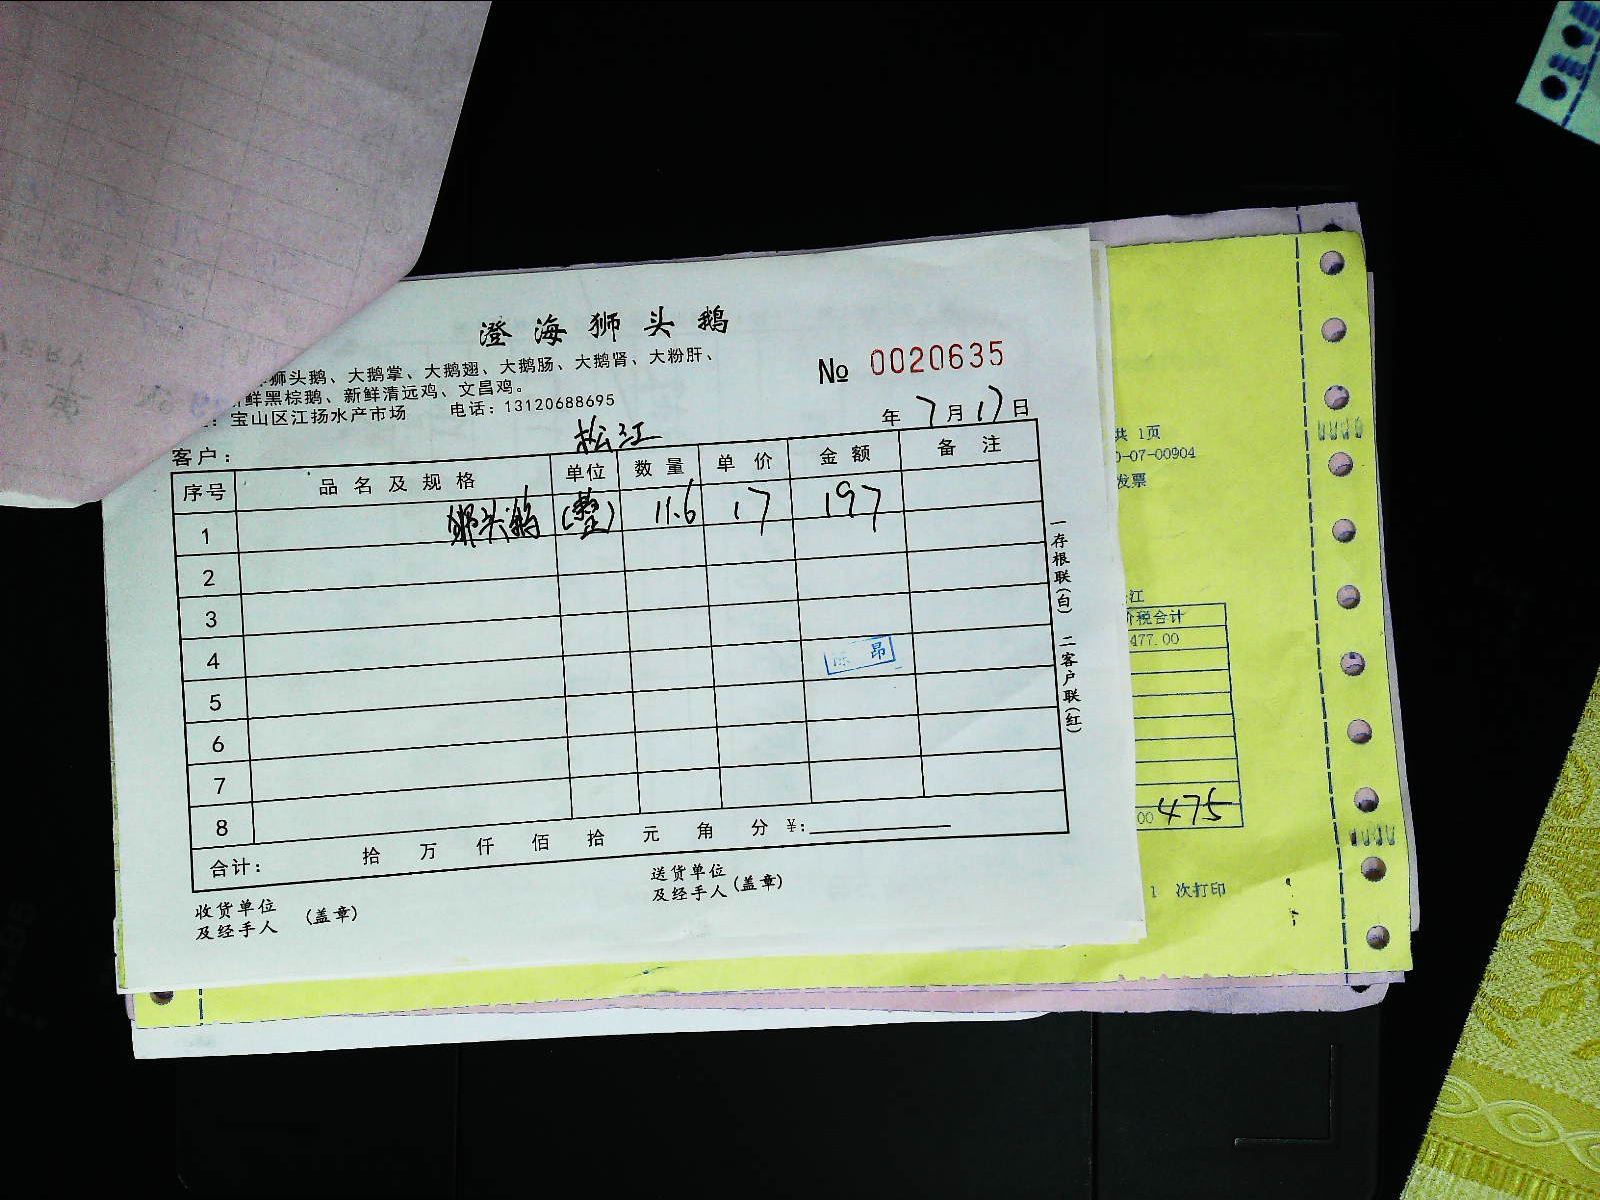 澄海狮头鹅
狮头鹅、大鹅掌、大鹅翅、大鹅肠、大鹅肾、大粉肝、
鲜黑棕鹅、新鲜清远鸡、文昌鸡。
№ 0020635
宝山区江扬水产市场 电话：13120688695
年 7月17日
客户： 松江
序号 品名及规格 单位 数量 单价 金额 备注
1 狮头鹅 (整) 11.6 17 197
2
3
4
昂
5
6
7
8
合计： 拾 万 仟 佰 拾 元 角 分 ¥:
收货单位 及经手人 (盖章)
送货单位 及经手人 (盖章)
一存根联(白) 二客户联(红)
共 1页
-07-00904
发票
江
价税合计
477.00
00 475
1 次打印